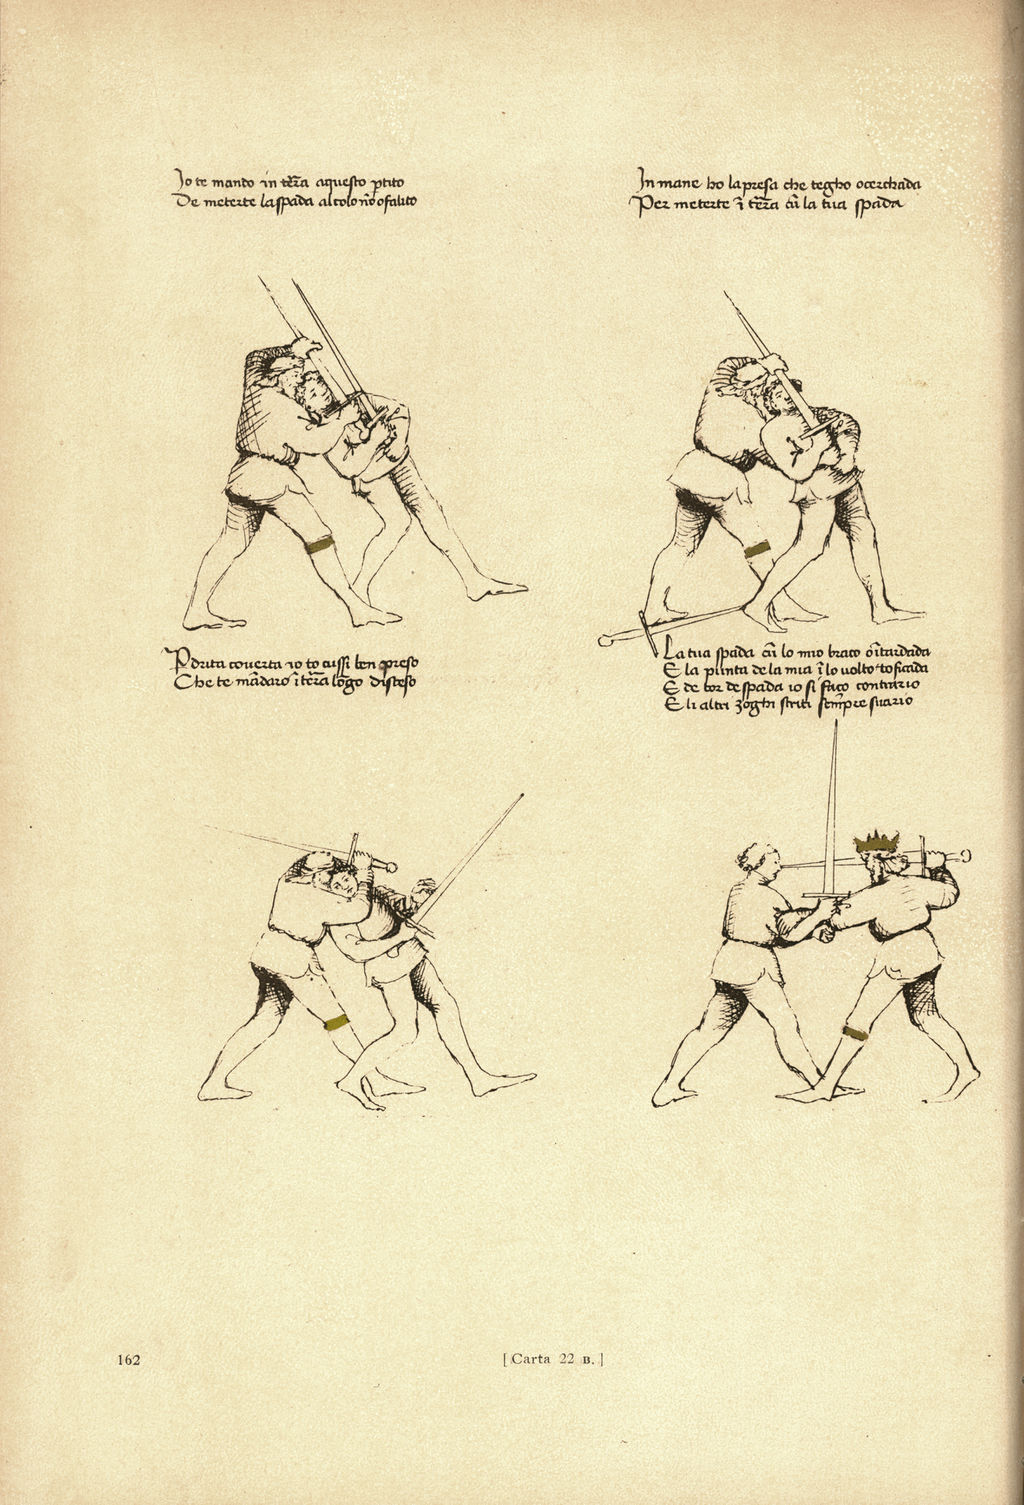 Io te mando in tēra aquesto ꝑtito
De meterte la spada al colo nō o falito
In mane ho la presa che tegho o cerchada
Per meterte ī tēra cū la tua spada
P drita coverta io to cussi ben preso
Che te mādaro ī tēra lōgo disteso
La tua spada cū lo mio braco
E la punta de la mia ī lo volto to ficada
E de tor de spada io si faço contrario
E li altri zoghi striti sempre
162
[ Carta 22 B. ]